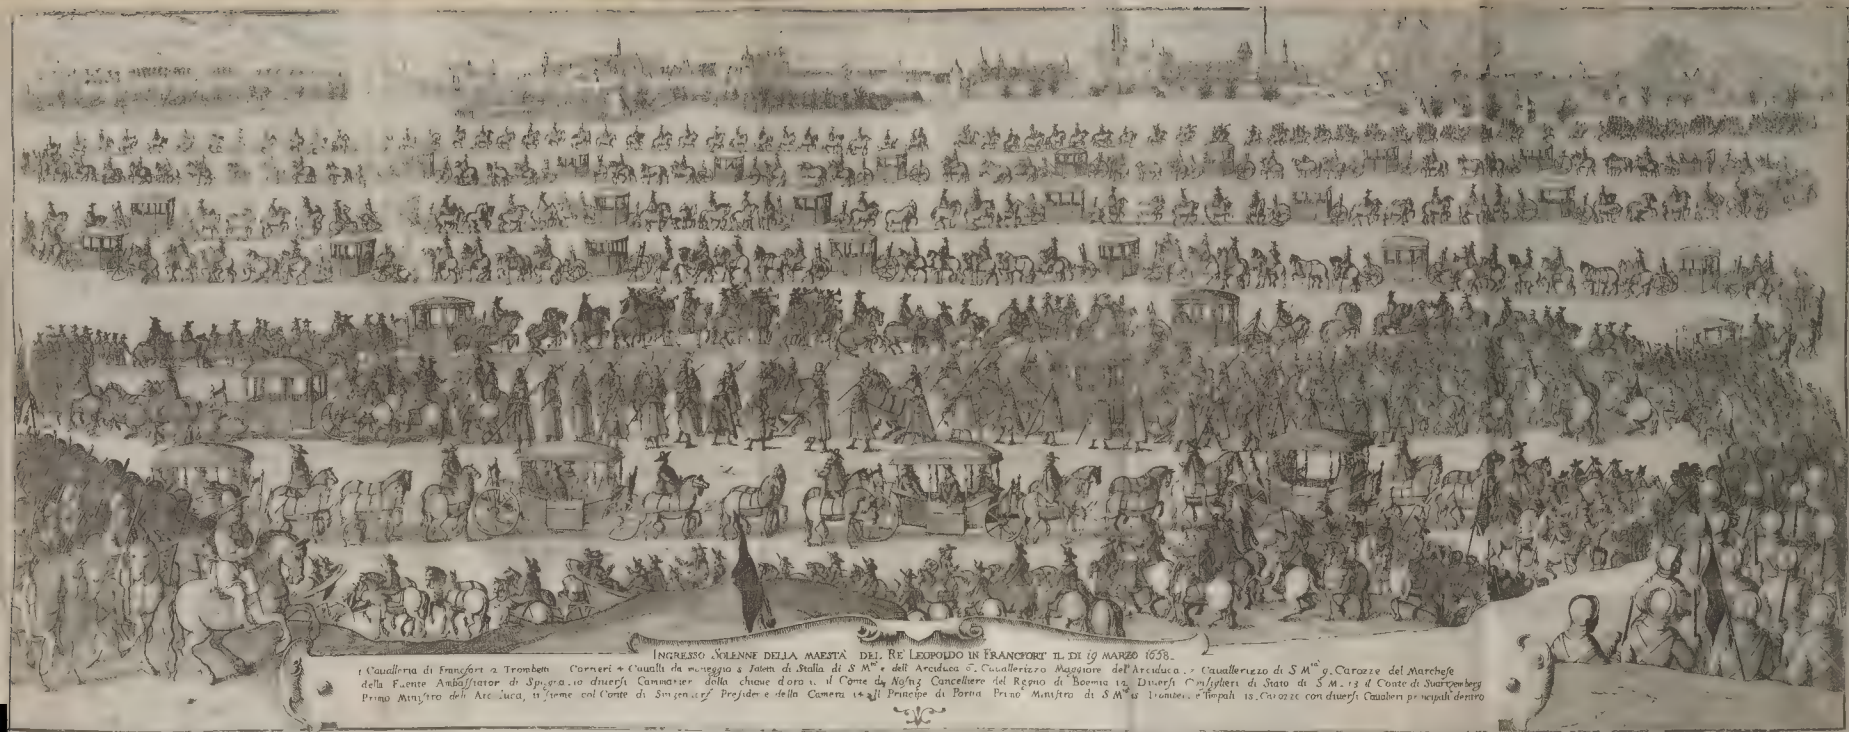 INGRESSO SOLENNE DELLA MAESTA' DEL RE' LEOPOLDO IN FRANCFORT IL DI 19 MARZO 1658.
1 Cavalleria di Francfort 2 Trombetti Corrieri 4 Cavalli da maneggio 5 di Stalla di S M.tà e dell Arciduca 6. Cavallerizzo Maggiore dell'Arciduca. Cavallerizzo di S M.tà 9. Carozze del Marchese
della Fuente Ambassiator di Spagna. 10 diversi Cammarier della chiave d'oro 11 il Conte di Cancelliere del Regno di Boemia 12 Diversi Consiglieri di Stato di S M. 13 il Conte di
Primo Ministro dell Arciduca, insieme col Conte di Presidente della Camera 14 il Principe di Portia Primo Ministro di S M.tà 15 e Timpali 18. Carozze con diversi Cavalieri principali dentro